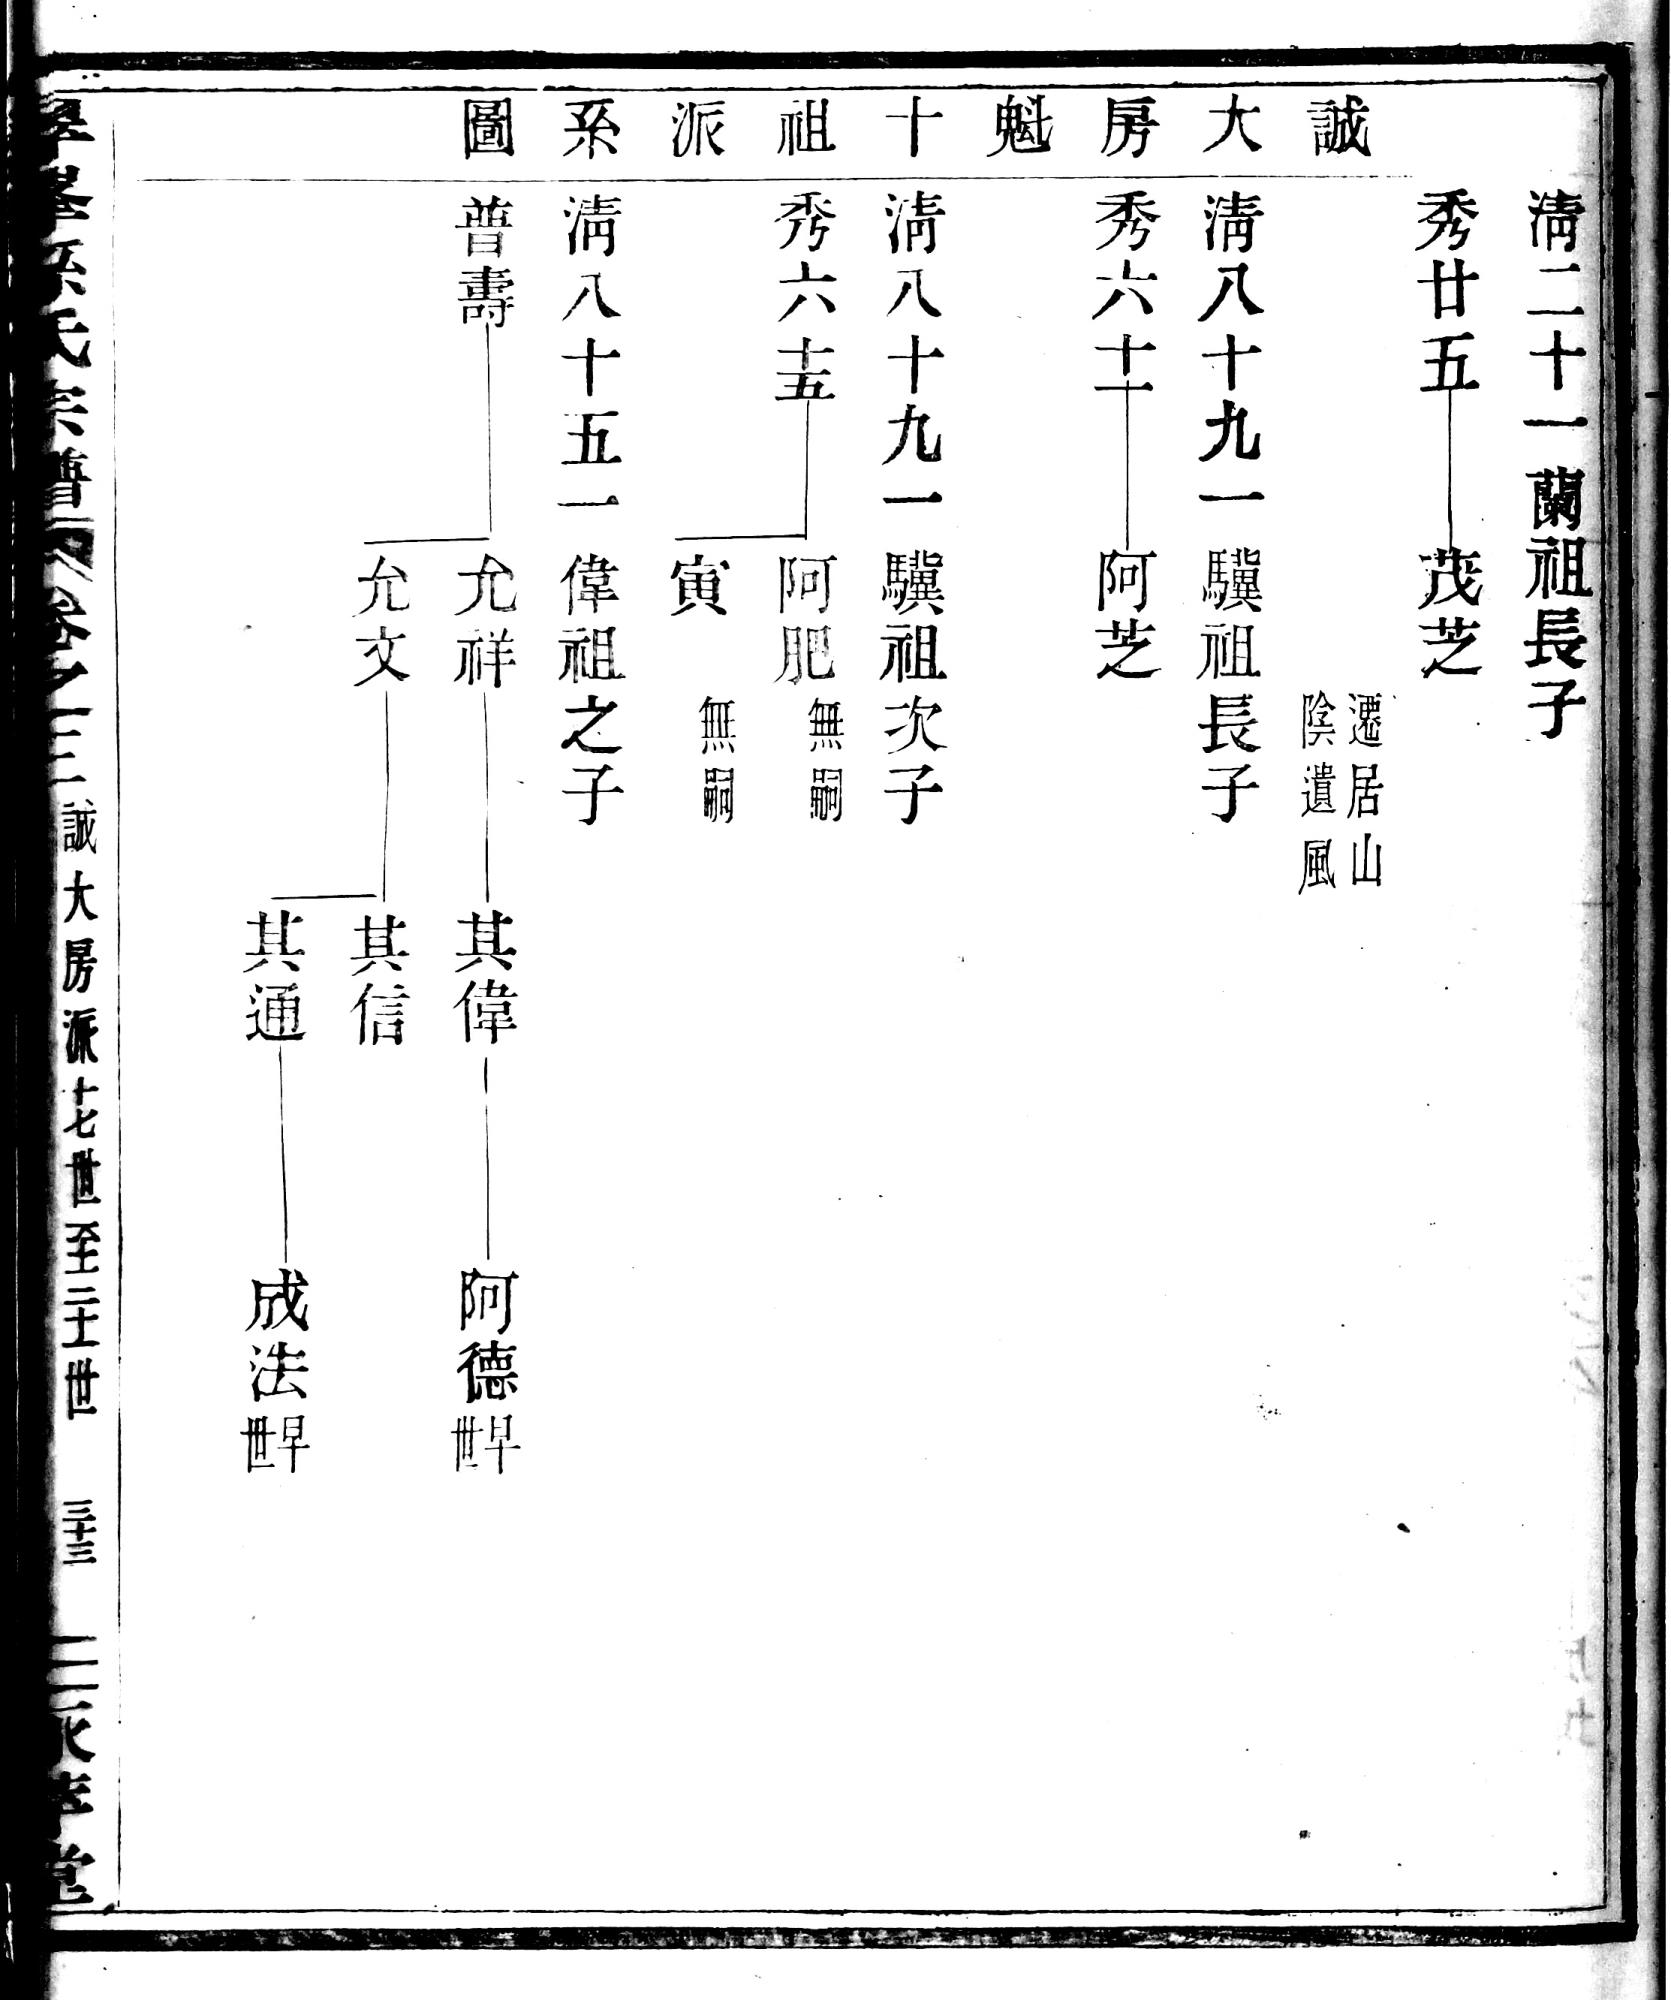 誠大房魁十祖派系圖
淸二十一蘭祖長子
秀廿五
茂芝
遷居山
陰遺風
淸八十九一驥祖長子
秀六十一
阿芝
淸八十九一驥祖次子
秀六十五
阿肥無嗣
寅無嗣
淸八十五一偉祖之子
普壽
允祥
其偉
阿德早世
允文
其信
其通
成法早世
孫氏宗譜
卷之三
誠大房派十七世至二十一世
三十三
堂